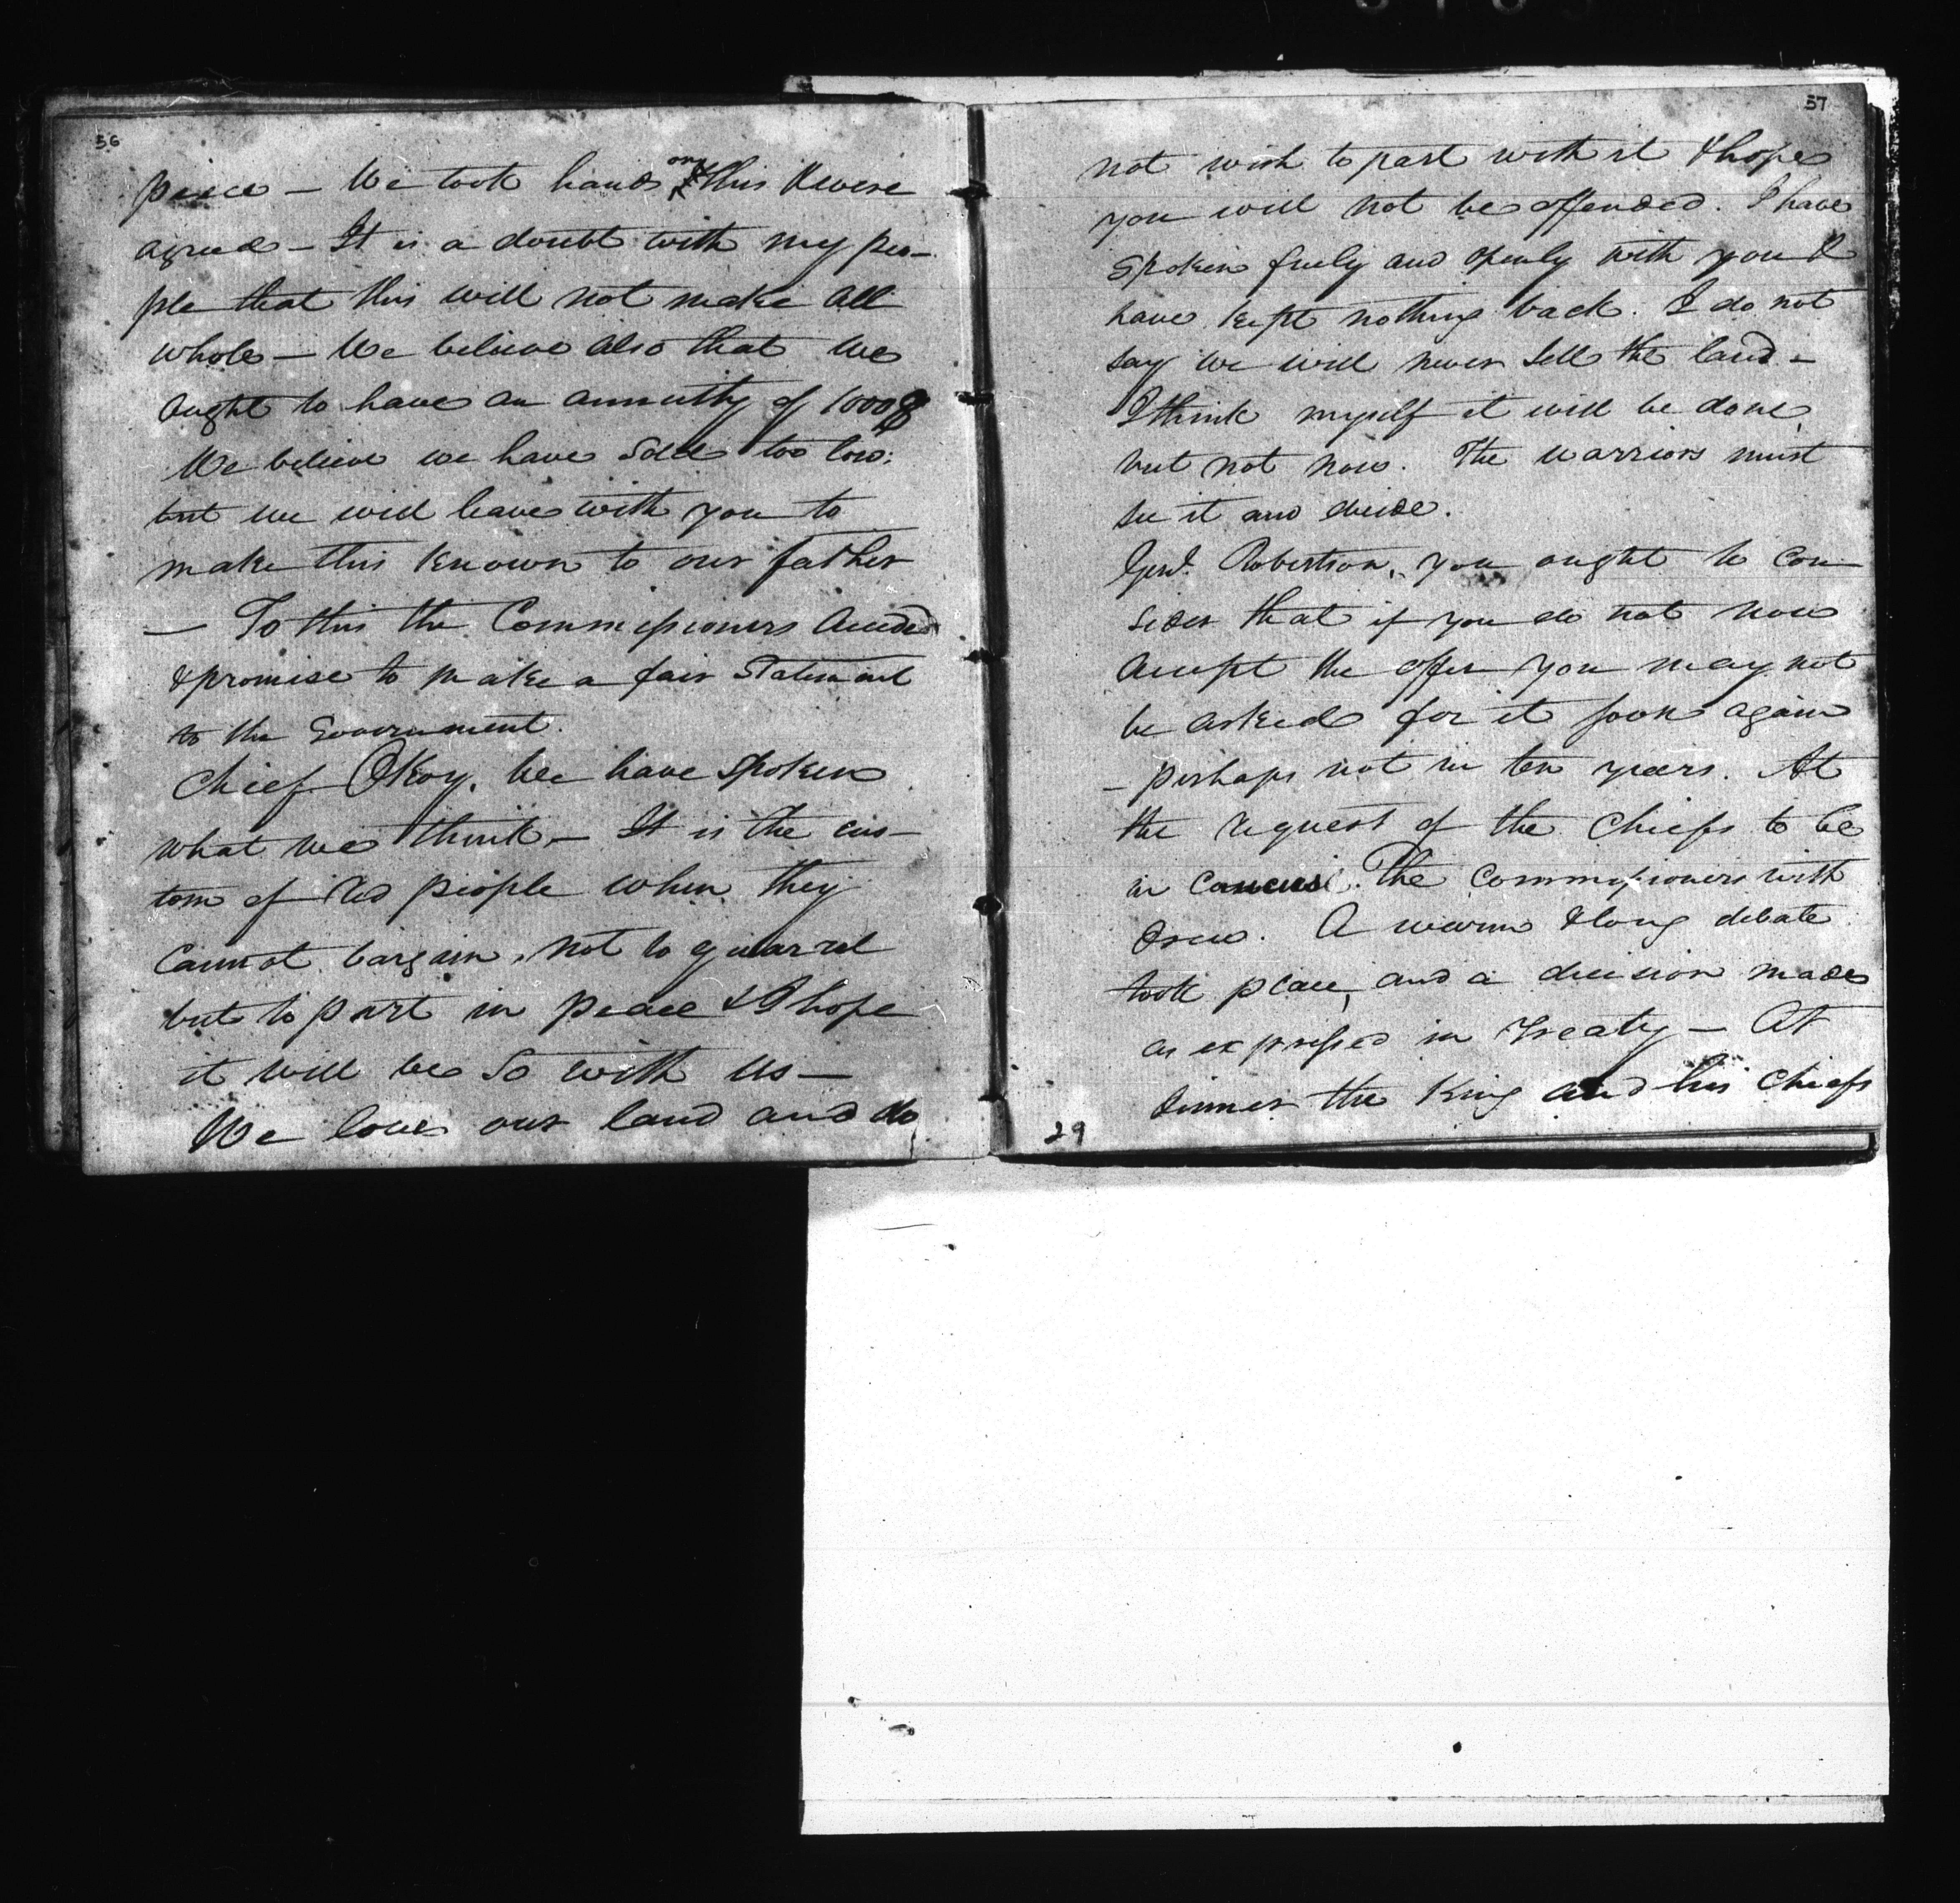 36
peace — We took hands on this & were
agreed — It is a doubt with my peo-
ple that this will not make all
whole — We believe also that we
ought to have an annuity of 1000$
We believe we have sold too low:
but we will leave with you to
make this known to our father
— To this the Commissioners acceded
& promise to make a fair Statement
to the Government.
Chief Okoy. We have spoken
what we think — It is the cus-
tom of red people when they
Cannot bargain, not to quarrel
but to part in peace & I hope
it will be so with us —
We love our land and do
37
not wish to part with it & hope
you will not be offended. I have
spoken freely and openly with you &
have kept nothing back. I do not
say we will never sell the land —
I think myself it will be done,
but not now. The warriors must
see it and decide.
Genl. Robertson, you ought to con-
sider that if you do not now
accept the offer you may not
be asked for it soon again
— perhaps not in ten years. At
the request of the Chiefs to be
in The Commissioners with
drew. A warm & long debate
took place, and a decision made
as expressed in Treaty — At
dinner the King and his Chiefs
29